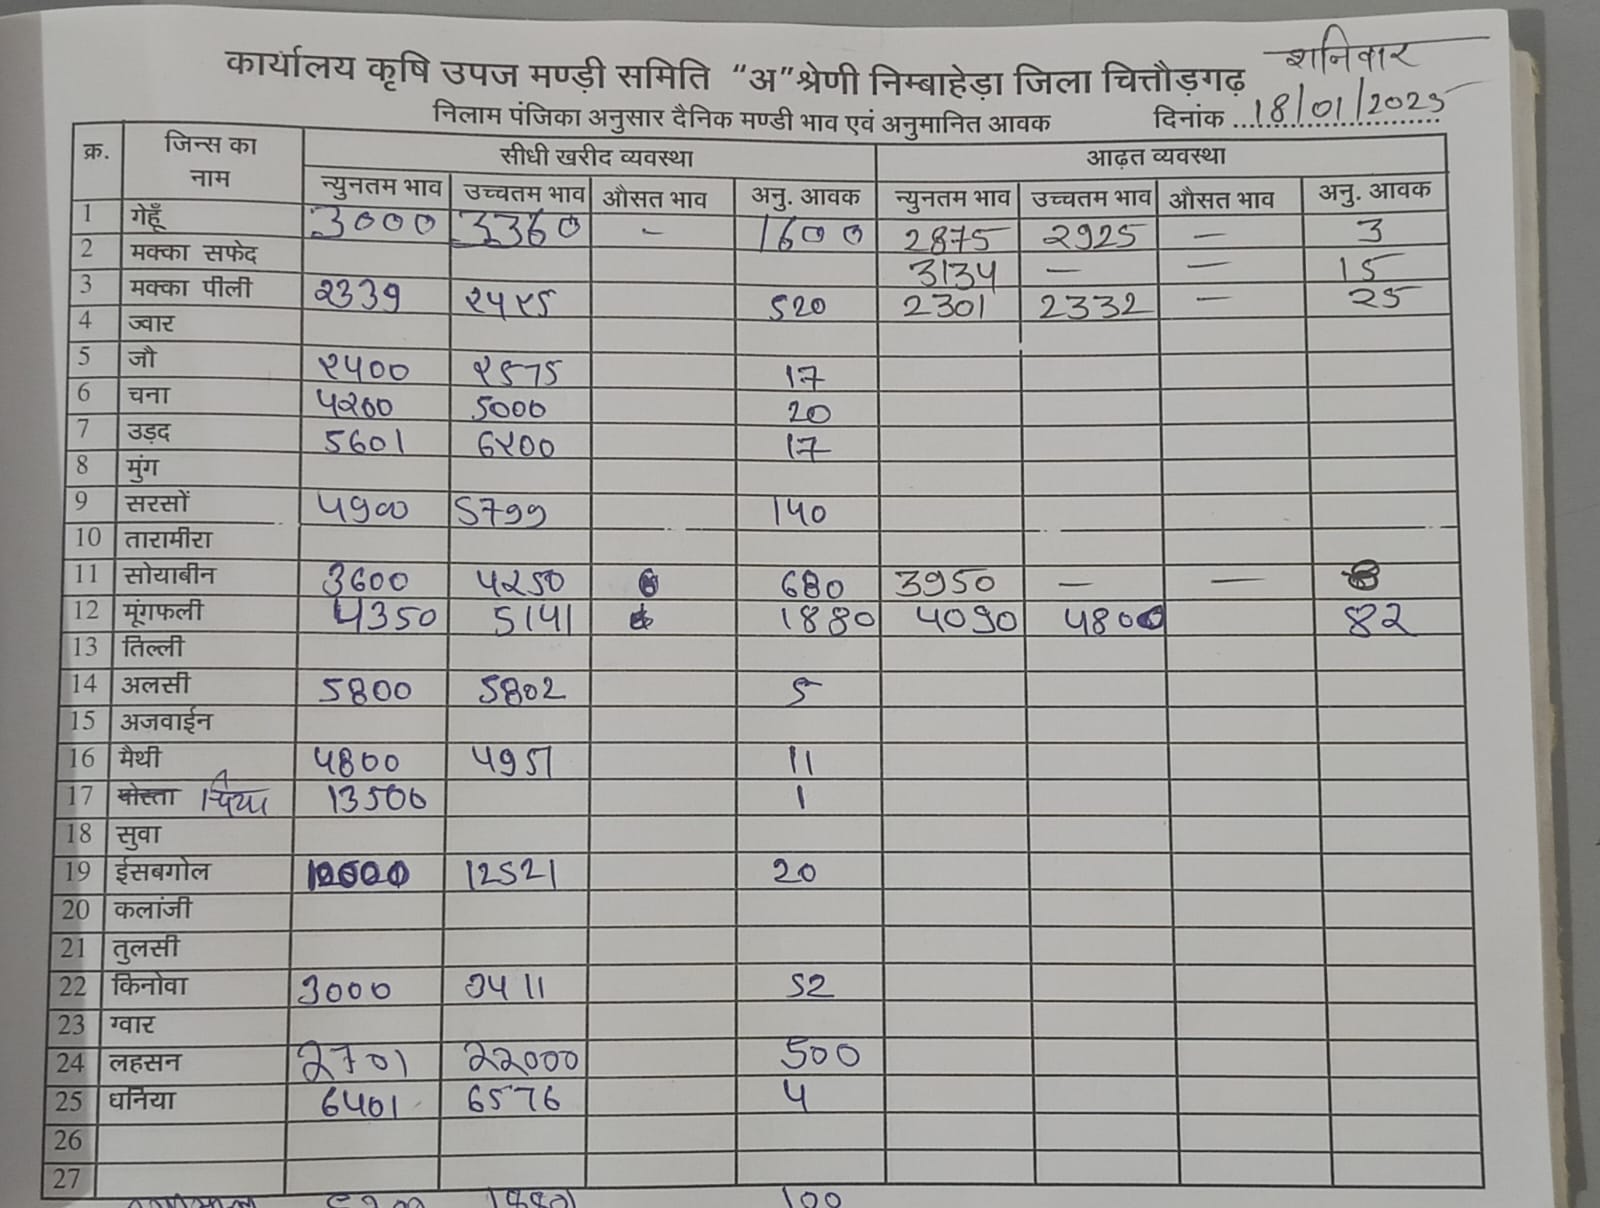 शनिवार
कार्यालय कृषि उपज मण्डी समिति "अ" श्रेणी निम्बाहेड़ा जिला चित्तौड़गढ़
निलाम पंजिका अनुसार दैनिक मण्डी भाव एवं अनुमानित आवक दिनांक 18/01/2025
क्र. जिन्स का नाम सीधी खरीद व्यवस्था आढ़त व्यवस्था
न्युनतम भाव उच्चतम भाव औसत भाव अनु. आवक न्युनतम भाव उच्चतम भाव औसत भाव अनु. आवक
1 गेहूँ 3000 3360 - 1600 2875 2925 - 3
2 मक्का सफेद 3134 - - 15
3 मक्का पीली २339 520 2301 2332 - 25
4 ज्वार
5 जौ २५00 २575 17
6 चना ५२00 5000 20
7 उड़द 5601 6२00 17
8 मुंग
9 सरसों ५900 5799 140
10 तारामीरा
11 सोयाबीन 3600 ५२50 680 3950 - -
12 मूंगफली ५350 5141 1880 ५090 4800 82
13 तिल्ली
14 अलसी 5800 5802 5
15 अजवाईन
16 मैथी ५800 ५951 11
17 पोस्ता चिया 13500 1
18 सुवा
19 ईसबगोल 12521 20
20 कलांजी
21 तुलसी
22 किनोवा 3000 3५11 52
23 ग्वार
24 लहसन 2701 22000 500
25 धनिया 6401 6576 ५
26
27
100